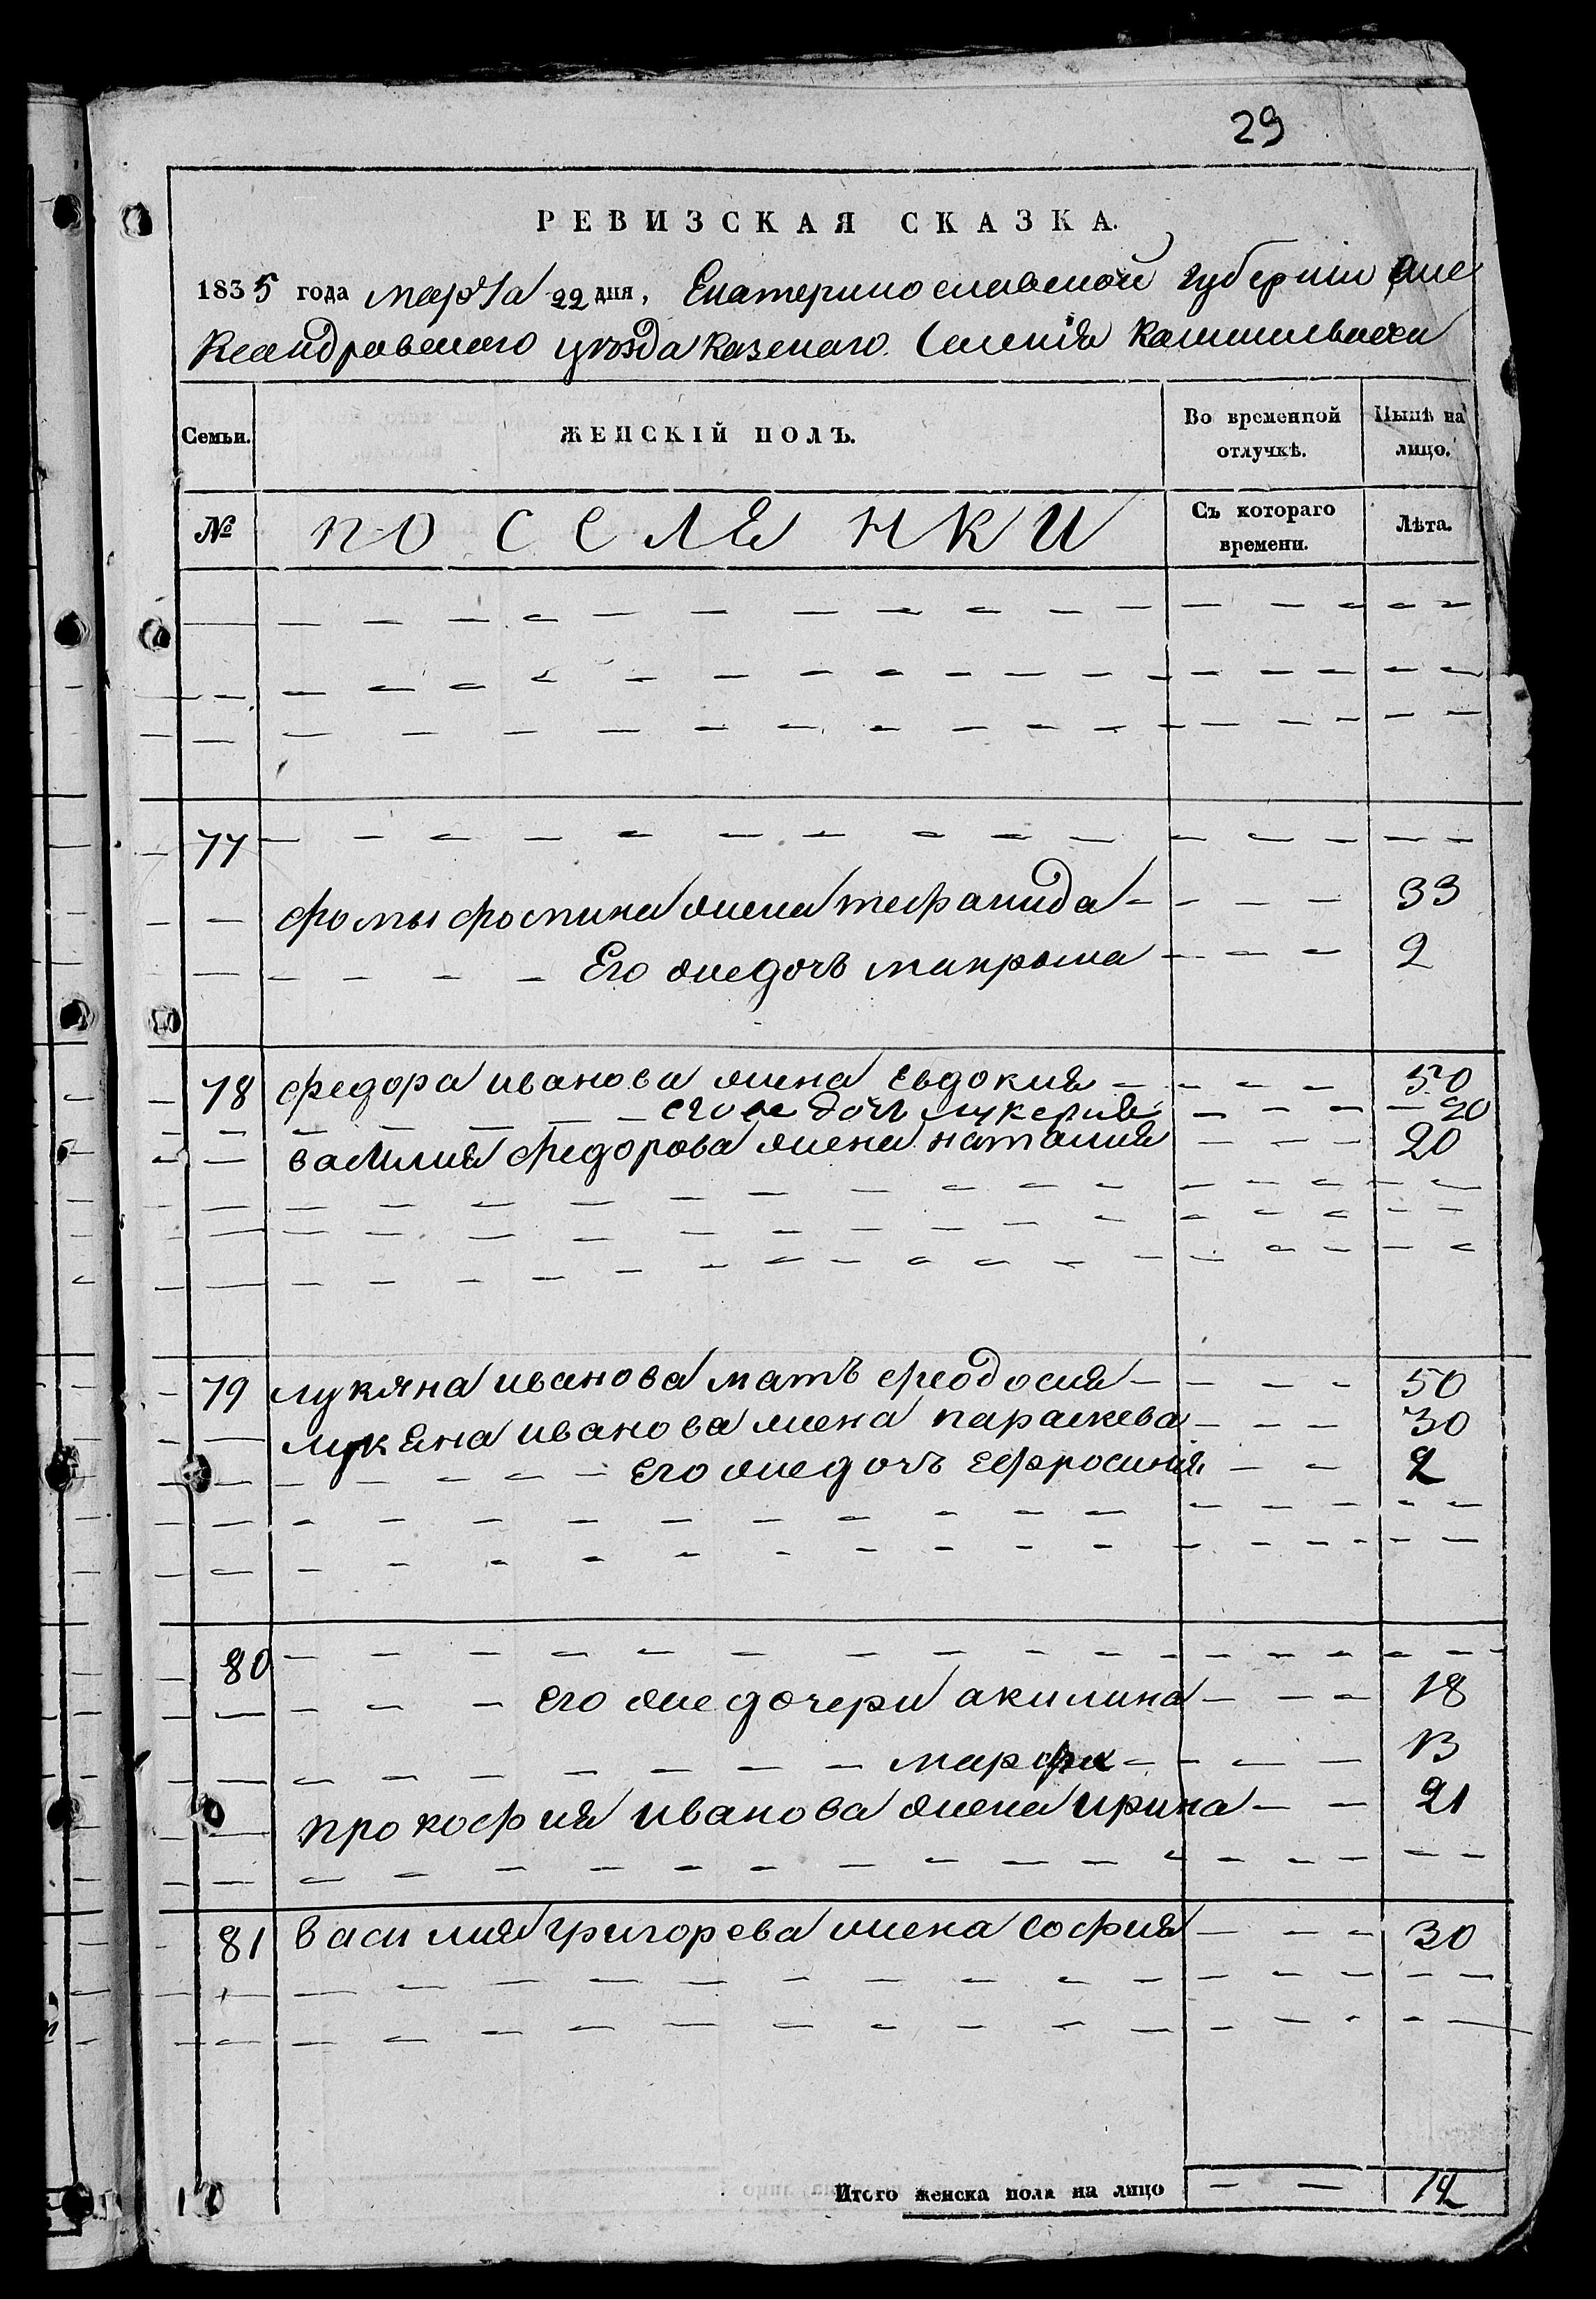 29
РЕВИЗСКАЯ СКАЗКА.
1835 года марта 22 дня, Екатеринославской губернии але
ксандровского уезда казенаго Селения
Семьи. ЖЕНСКІЙ ПОЛЪ. Во временной отлучкѣ. Нынѣ на лицо.
№ поселянки Съ котораго времени. Лѣта.
77
фомы фомина жена 33
Его же дочь макрына 2
78 федора иванова жена Евдокия 50
его же дочь лукерия 20
василия федорова жена наталия 20
79 лукяна иванова мать феодосия 50
лукяна иванова жена параскева 30
Его же дочь Ефросиния 2
80
Его же дочери акилина 18
марфа 13
прокофия иванова жена ирина 21
81 василия григорева жена София 30
Итого женска пола на лицо 12